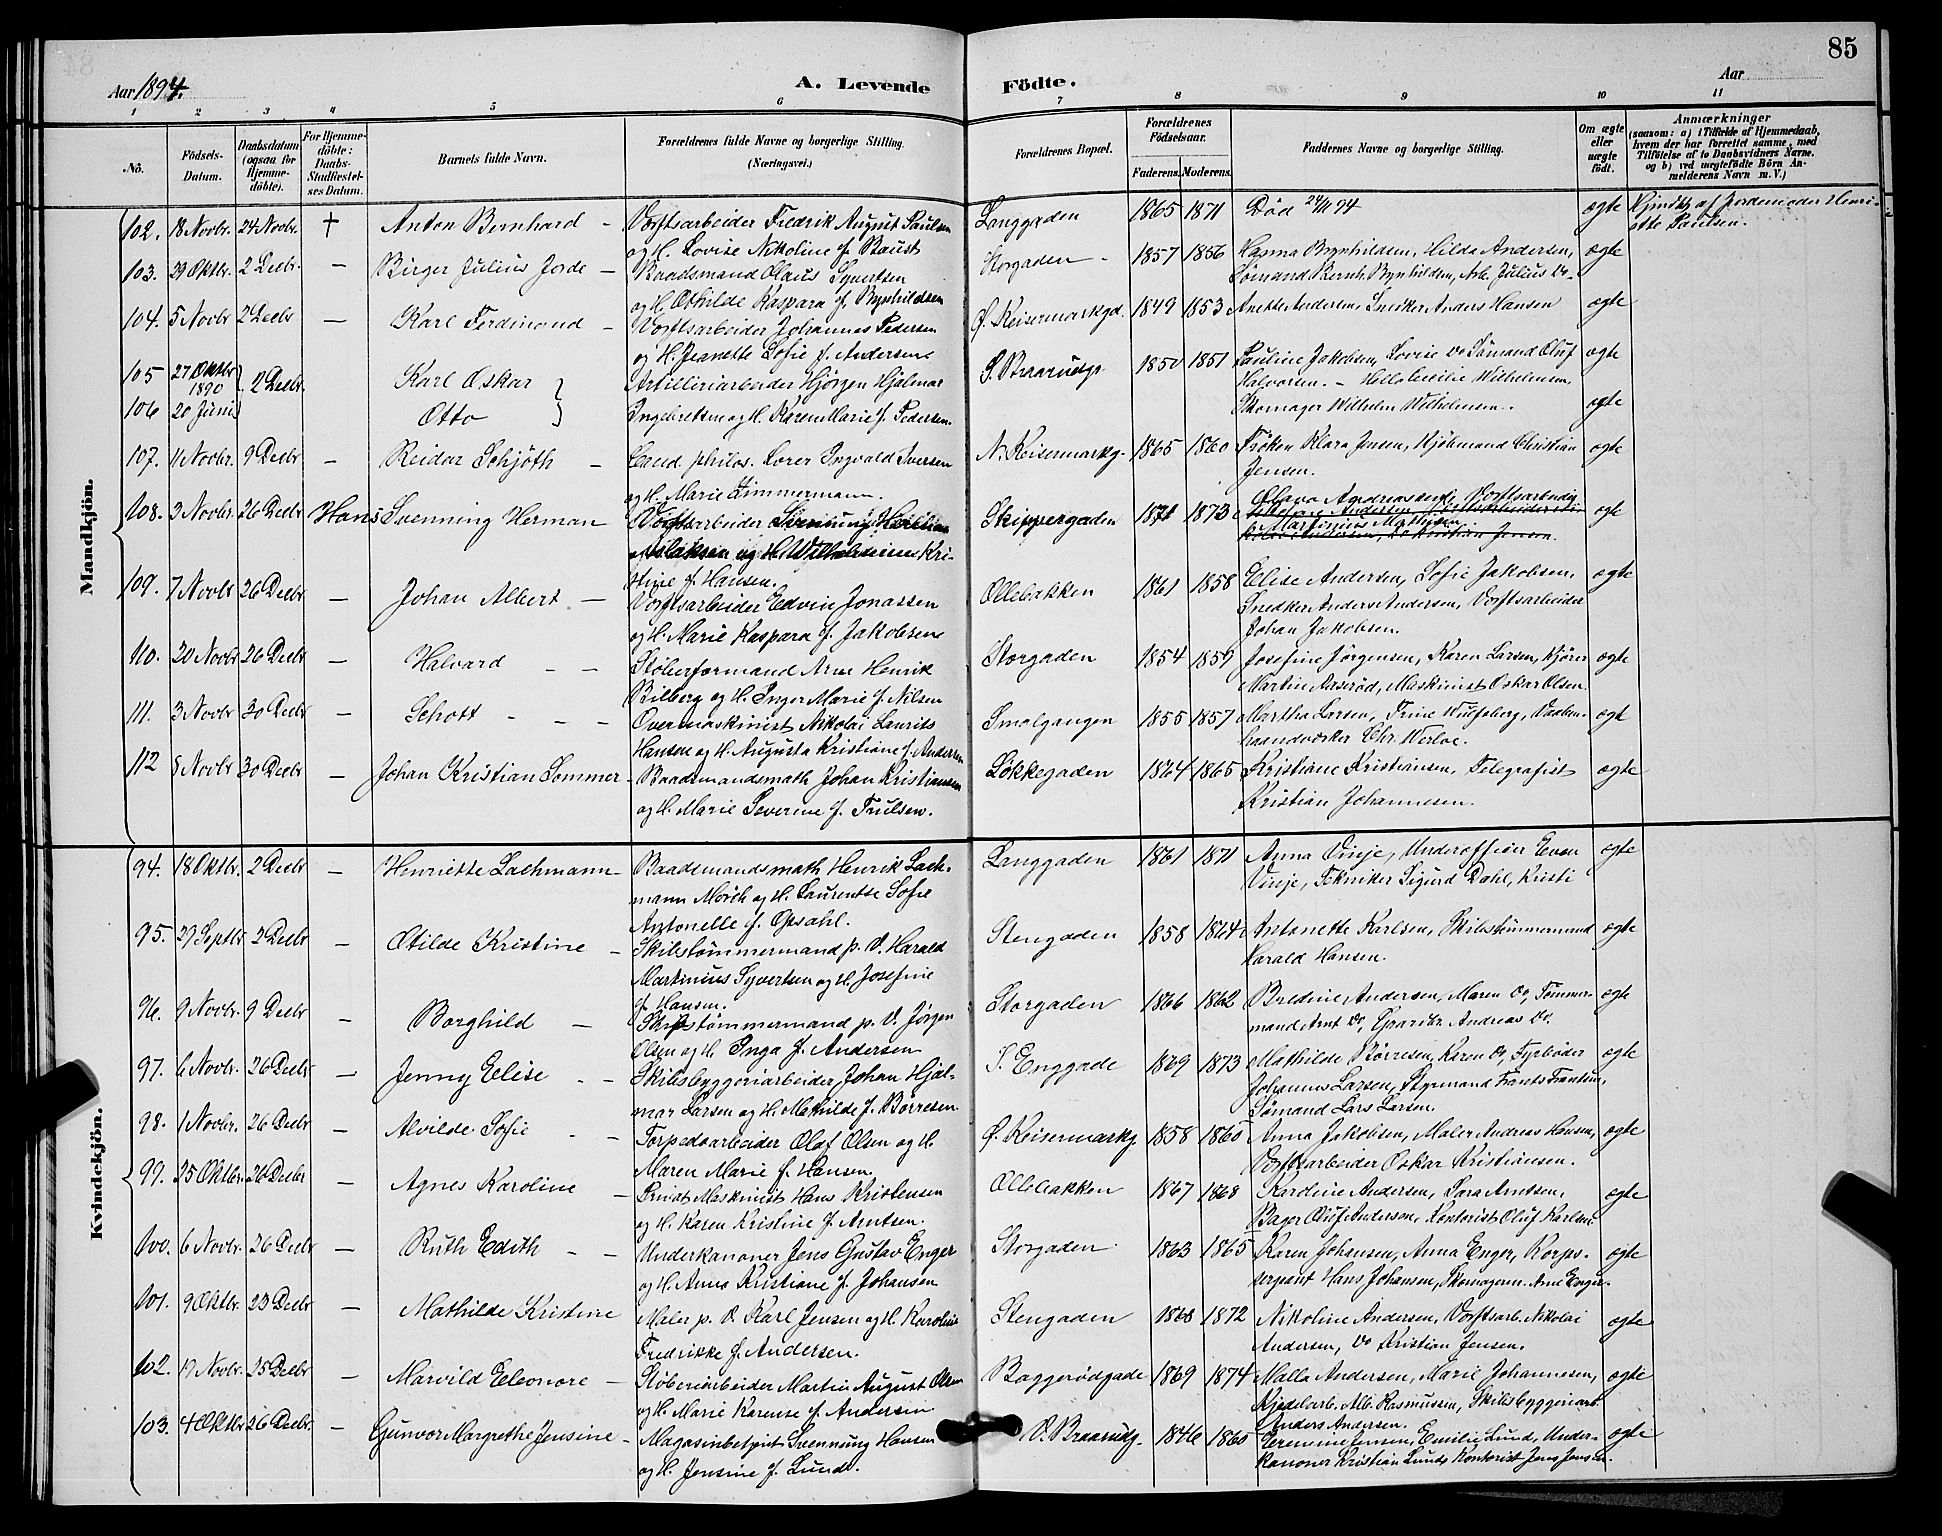 85
Aar 1894.
A. Levende Födte.
Aar
1 2 3 4 5 6 7 8 9 10 11
No.
Födsels-Datum.
Daabsdatum (ogsaa for Hjemme-döbte).
For Hjemme-döbte: Daabs-Stadfæstel-ses Datum.
Barnets fulde Navn.
Forældrenes fulde Navne og borgerlige Stilling. (Næringsvei.)
Forældrenes Bopæl.
Forældrenes Födselsaar.
Faderens. Moderens.
Faddernes Navne og borgerlige Stilling.
Om ægte eller uægte födt.
Anmærkninger
(saasom: a) i Tilfælde af Hjemmedaab,
hvem der har forrettet samme, med
Tilföielse af to Daabsvidners Navne.
og b) ved uægtefödte Börn An-
melderens Navn m. V.)
Mandkjön.
102. 18 Novbr. 24 Novbr. † Anton Bernhard – Verftsarbeider Fredrik August Paulsen
og H. Lovise Nikoline f. Baust
Langgaden 1865 1871 Död 24/11 94 ægte Hjemdøbt af Jordemoder Henri-
ette Paulsen.
103. 29 Oktbr. 2 Decbr. – Birger Julius Jorde – Baadsmand Olaus Syvertsen
og H. Othilde Kaspara f. Bynhildsen
Storgaden – 1857 1856 Hanna Bynhildsen, Hilda Andersen,
Sømand Bernh. Bynhildsen, Arb. Julius Do – ægte
104. 5 Novbr 2 Decbr – Karl Ferdinand – Verftsarbeider Johannes Pedersen
og H. Jeanette Sofie f. Andersen
Ø. Keisermarkgd. 1849 1853 Anette Andersen Snedker Anders Hansen ægte
105 27 Oktbr 1890 2 Decbr. Karl Oskar Artilleriarbeider Hjörgen Hjalmar
106 20 Juni Otto Ingebretsen og H. Karen Marie f. Pedersen.
S. Braarudg. 1850 1851 Pauline Jakobsen, Lovise Do Sømand Oluf
Halvorsen. – Helle Cecilie Wilhelmsen,
Skomager Wilhelm Wilhelmsen. ægte ægte
107. 11 Novbr. 9 Decbr – Reidar Schjöth – Cand. philos. Lærer Ingvald Iversen
og H. Marie Zimmermann.
N. Keisermarkg. 1865 1860 Frøken Klara Jensen, Kjøbmand Christian
Jensen. ægte
108. 3 Novbr. 26 Decbr Hans Svenning Herman Verftsarbeider
og H. Wilhelmine Kri-
stine f. Hansen.
Skippergaden 1871 1873 Olava Andreassen, Verftsarbeid.
Martinius Mathisen
Kristian Jensen. ægte
109. 7 Novbr 26 Decbr – Johan Albert – Verftsarbeider Edvin Jonassen
og H. Marie Kaspara f. Jakobsen
Ollebakken 1861 1858 Elise Andersen, Sofie Jakobsen,
Snedker Anders Andersen, Verftsarbeider
Johan Jakobsen. ægte
110. 20 Novbr 26 Decbr – Halvard – – Støberformand Arne Henrik
Bilberg og H. Inger Marie f. Nilsen
Storgaden 1854 1859 Josefine Jørgensen, Karen Larsen, Kjører
Martin Aaserød, Maskinist Oskar Olsen. ægte
111. 3 Novbr 30 Decbr – Schott – – – Overmaskinist Nikolai Laurits
Hansen og H. Augusta Kristiane f. Andersen
Smalgangen 1855 1857 Martha Larsen, Trine Wulfsberg, Vaaben-
haandværker Chr. Werloe. ægte
112 8 Novbr 30 Decbr – Johan Kristian Sommer – Baadsmandsmath Johan Kristiansen
og H. Marie Severine f. Trulsen.
Løkkegaden 1864 1865 Kristiane Kristiansen, Telegrafist
Kristian Johannesen. ægte
Kvindekjön.
94. 18 Oktbr. 2 Decbr – Henriette Lachmann – Baadsmandsmath Henrik Lach-
mann Mørch og H. Laurentse Sofie
Antonette f. Opsahl.
Langgaden 1861 1871 Anna Vinje, Underofficier Even
Vinje, Tekniker Sigurd Dahl, Kristi ægte
95. 29 Septbr 2 Decbr – Otilde Kristine – Skibstømmermand p. V. Harald
Martinius Syvertsen og H. Josefine
f. Hansen.
Stengaden 1858 1864 Antonette Karlsen, Skibstømmermand
Harald Hansen. ægte
96. 9 Novbr. 9 Decbr – Borghild – Skibstømmermand p. V. Jørgen
Olsen og H. Inga f. Andersen
Storgaden 1866 1862 Bredine Andersen, Maren Do, Tømmer-
mand Arnt Do, Gaardbr. Andreas Do. ægte
97. 6 Novbr. 26 Decbr – Jenny Elise – – Skibsbyggeriarbeider Johan Hjal-
mar Larsen og H. Mathilde f. Børresen
S. Enggade 1869 1873 Mathilde Børresen, Karen Do, Fyrbøder
Johannes Larsen, Styrmand Frants Frantsen,
Sømand Lars Larsen. ægte
98. 1 Novbr. 26 Decbr – Alvilde Sofie – – Torpedoarbeider Olaf Olsen og H.
Maren Marie f. Hansen.
Ø. Keisermarkg 1858 1860 Anna Jakobsen, Maler Andreas Hansen,
Verftsarbeider Oskar Kristiansen. ægte
99. 25 Oktbr. 26 Decbr – Agnes Karoline – Privat Maskinist Hans Kristensen
og H. Karen Kristine f. Arntsen.
Ollebakken 1867 1868 Karoline Andersen, Lara Arntsen,
Bager Oluf Andersen, Kontorist Oluf Karlsen. ægte
100. 6 Novbr. 26 Decbr – Ruth Edith – – Underkanoner Jens Gustav Enger
og H. Anna Kristiane f. Johansen
Storgaden 1863 1865 Karen Johansen, Anna Enger, Korps-
sergeant Hans Johansen, Skomagerm. Arne Enger. ægte
101. 9 Oktbr. 23 Decbr – Mathilde Kristine Maler p. V. Karl Jensen og H. Karoline
Fredrikke f. Andersen.
Stengaden 1868 1872 Nikoline Andersen, Verftsarb. Nikolai
Andersen, Do Kristian Jensen. ægte
102. 19 Novbr. 25 Decbr – Marvild Eleonore – Støberiarbeider Martin August Olsen
og H. Marie Karense f. Andersen
Baggerødgade 1869 1874 Malla Andersen, Marie Johannesen,
Kjedelarb. Alb. Rasmussen, Skibsbyggeriarb.
Anders Andersen. ægte
103. 4 Oktbr 26 Decbr. – Gunvor Margrethe Jensine – Magasinbetjent Svenning Hansen
og H. Jensine f. Lund.
V. Braarudg. 1846 1860 Jensen, Emilie Lund, Under-
kanoner Kristian Lund, Kontorist Jens Jensen. ægte